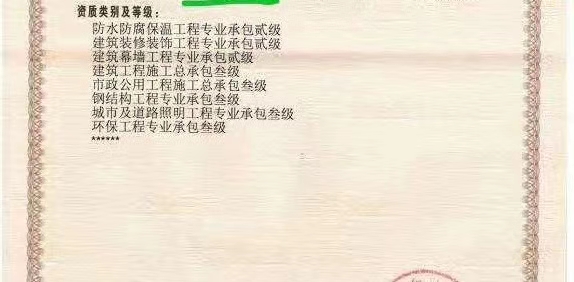 资质类别及等级：
防水防腐保温工程专业承包贰级
建筑装修装饰工程专业承包贰级
建筑幕墙工程专业承包贰级
建筑工程施工总承包叁级
市政公用工程施工总承包叁级
钢结构工程专业承包叁级
城市及道路照明工程专业承包叁级
环保工程专业承包叁级
******